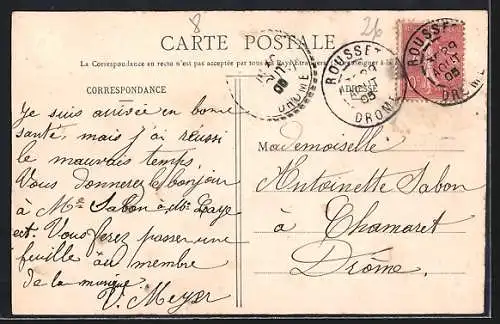 8
26
CARTE POSTALE
La Correspondance au recto n'est pas acceptée par tous les Pays Étrangers
CORRESPONDANCE
ADRESSE
ROUSSET
29
AOUT
05
DROME
ROUSSET
29
AOUT
05
DROME
05
DROME
Je suis arrivée en bonne
santé, mais j'ai réussi
le mauvais temps.
Vous donnerez le bonjour
à Me Sabon à Mr
ect. Vous ferez passer une
feuille au membre
de la musique.
V. Meyer
Mademoiselle
Antoinette Sabon
à Chamaret
Drôme.